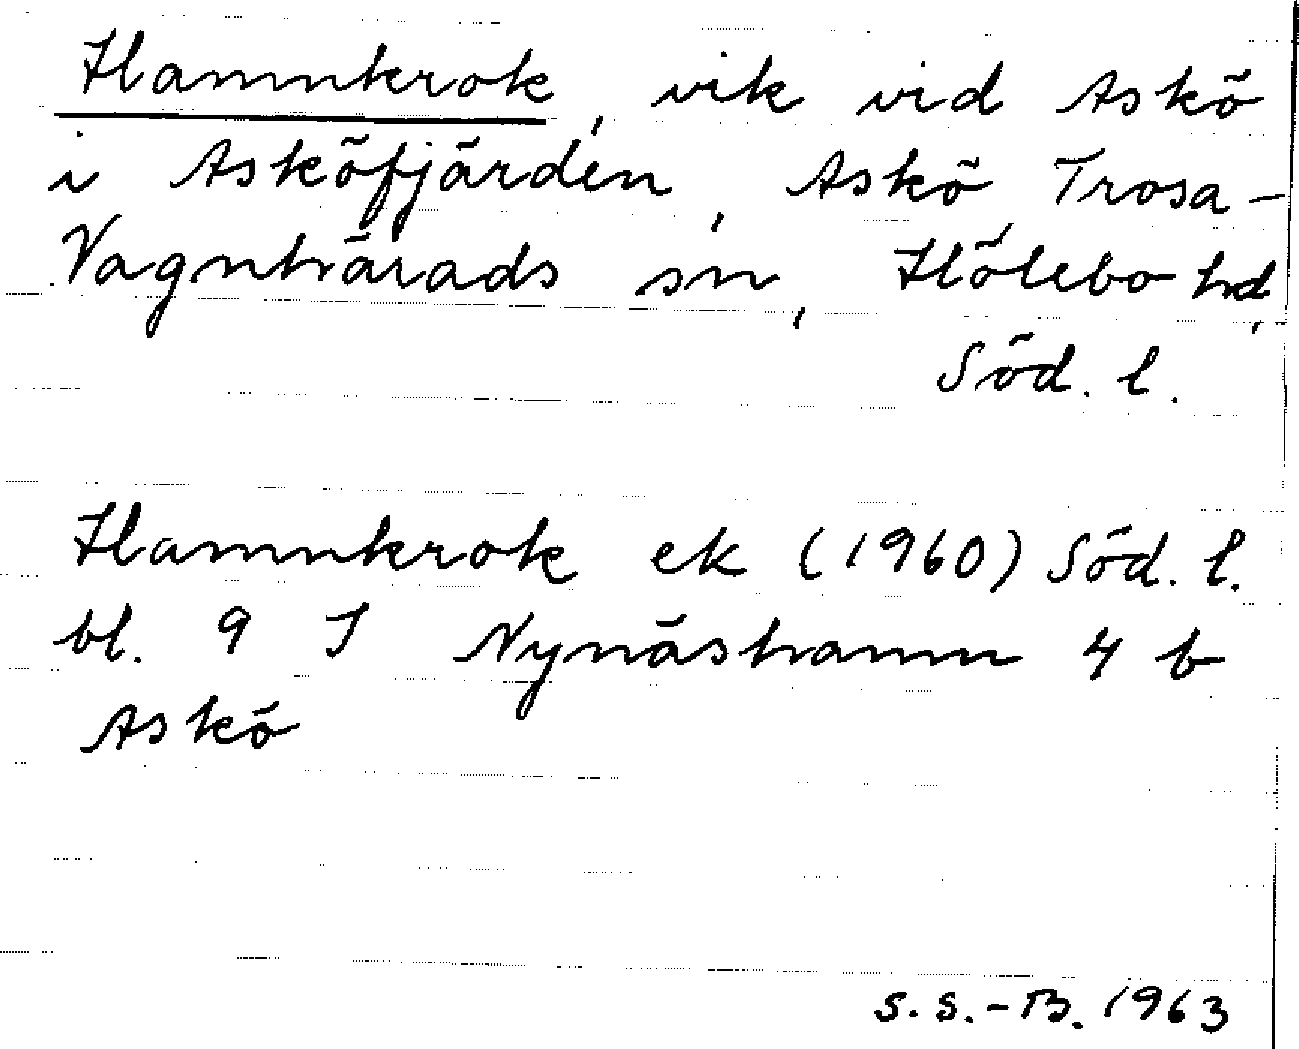 Hamnkrok, vik vid Askö
i Asköfjärden, Askö, Trosa-
Vagnhärads sn, Hölebo hd,
Söd. l.
Hamnkrok ek (1960) Söd. l.
bl. 9 I Nynäshamn 4 b
Askö
S. S.-B. 1963